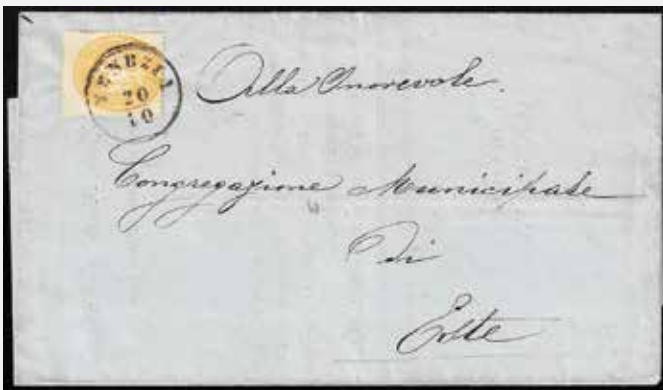 VENEZIA
20
10
Alla Onorevole.
Congregazione Municipale
Di
Este